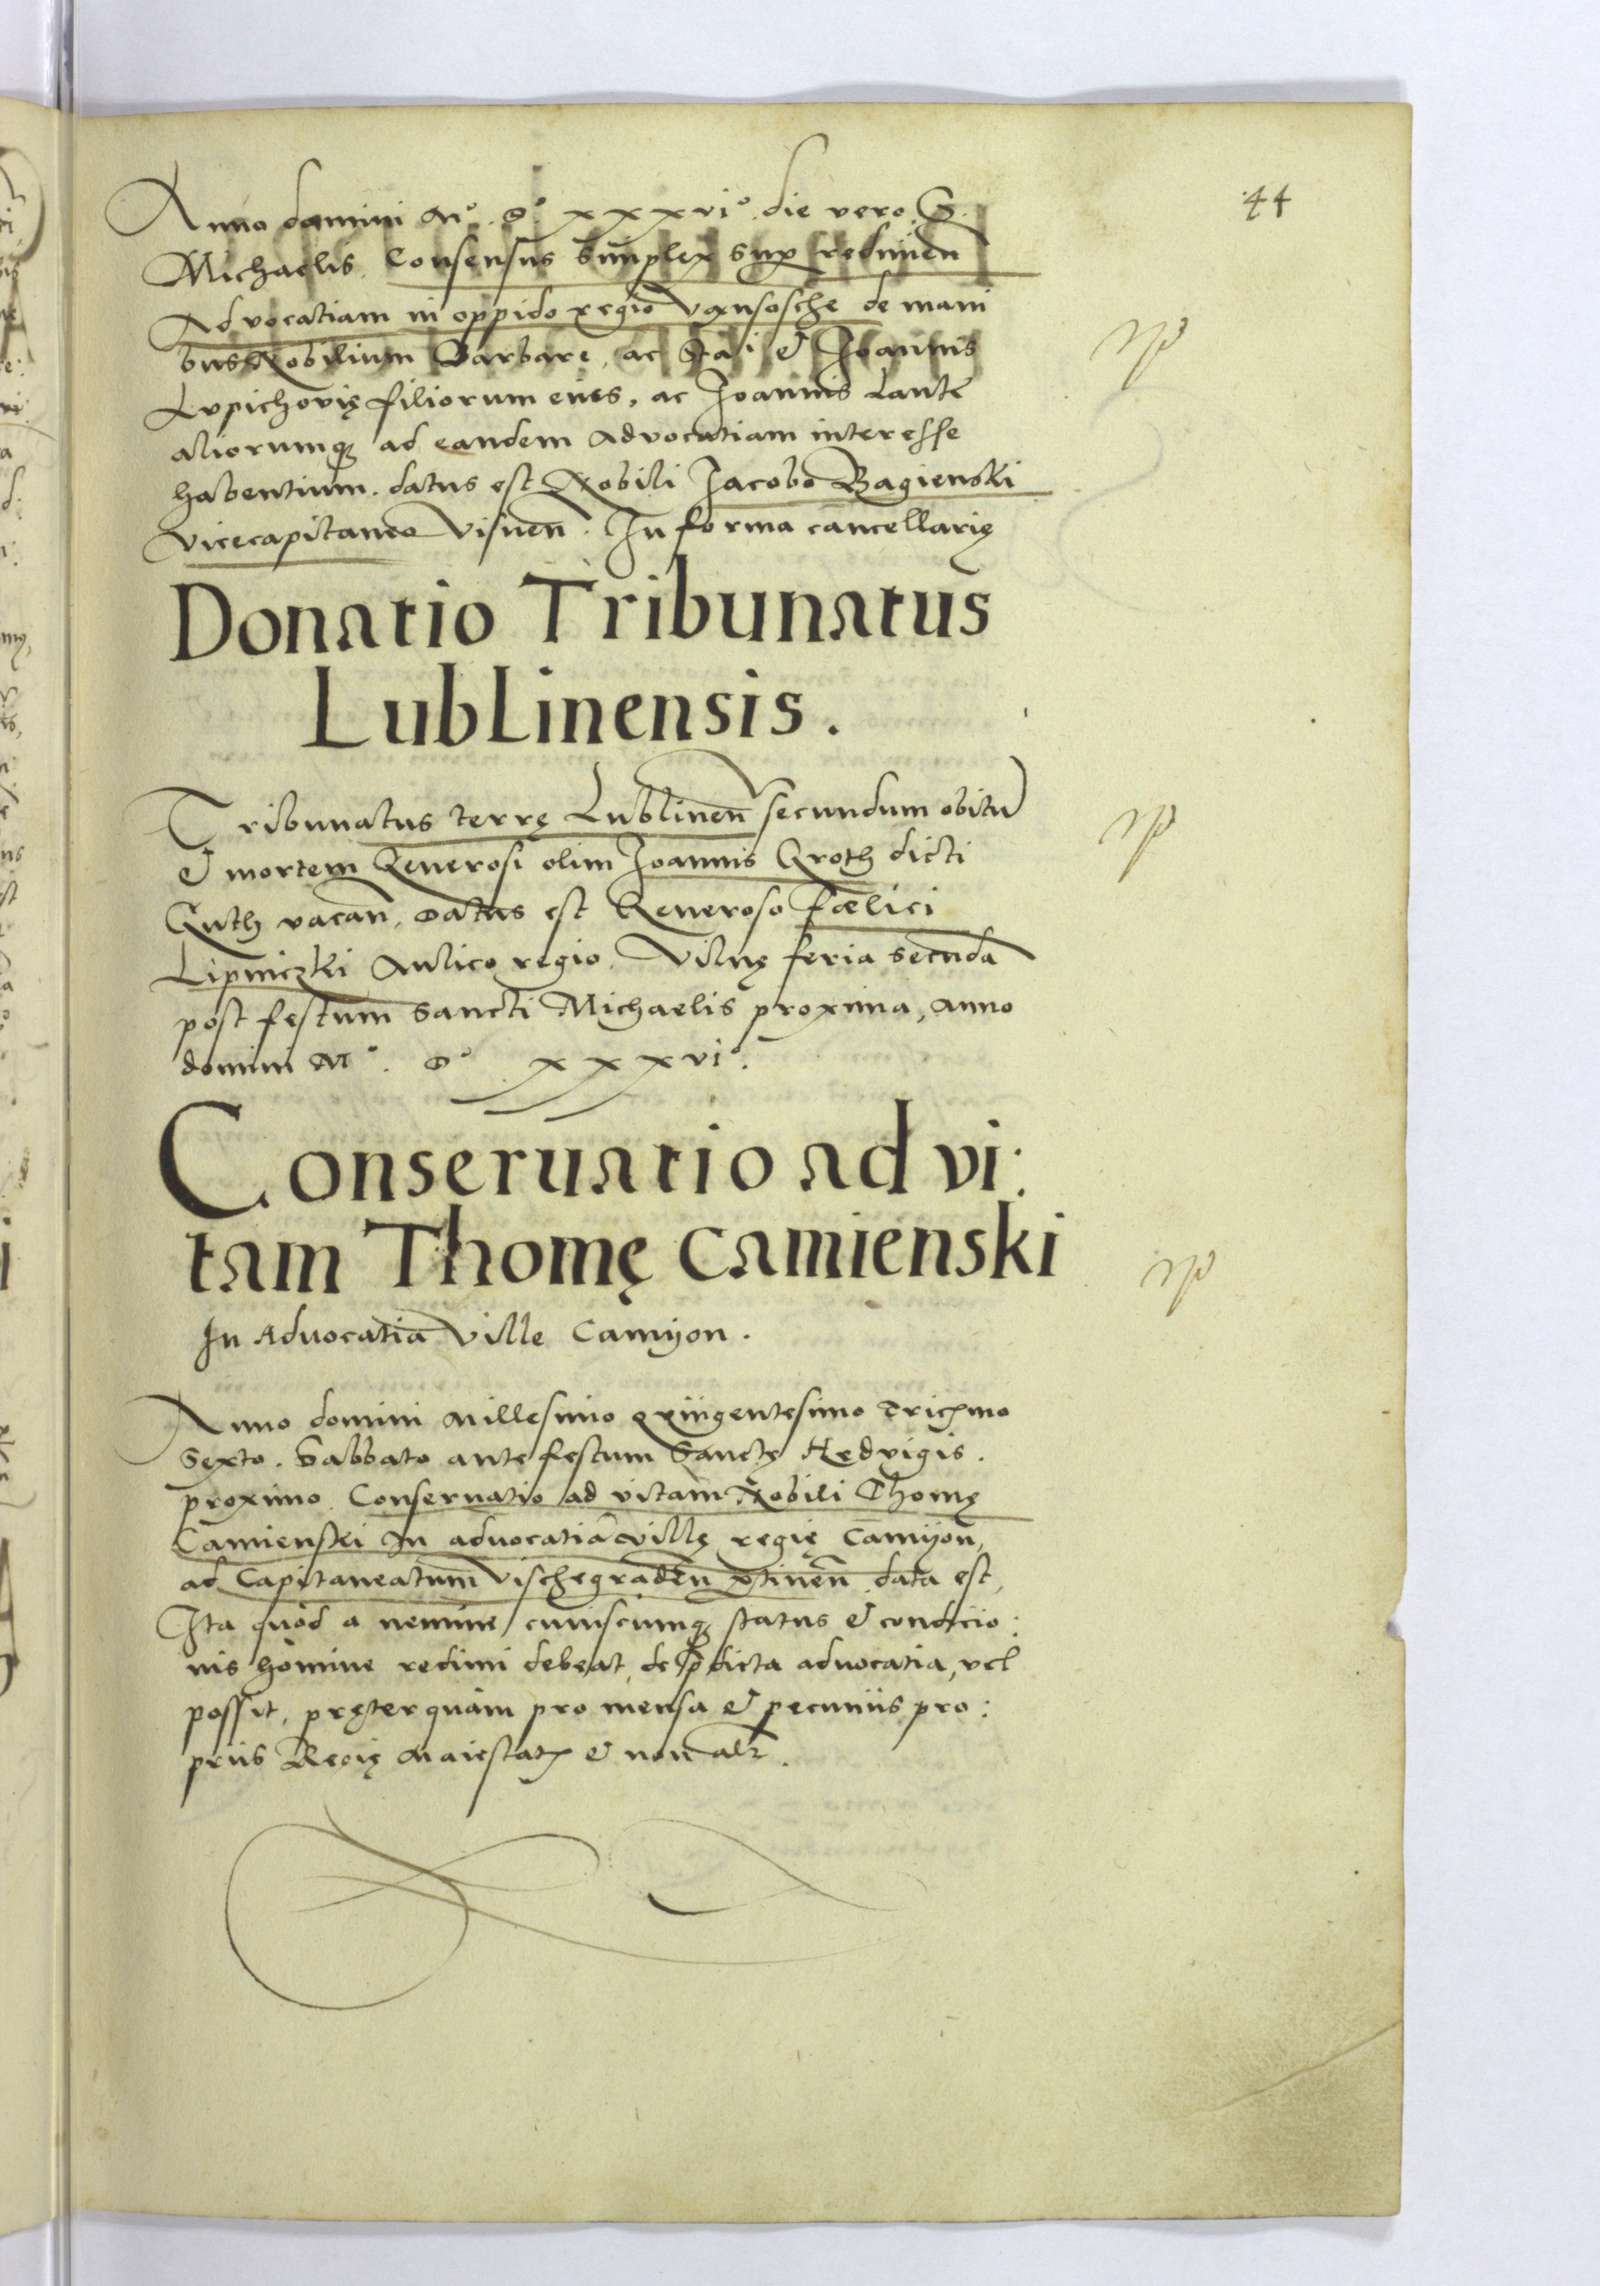 44
Anno domini Mº. Dº. xxxviº. die vero S.
Michaelis. Consensus simplex sup redimen
Advocatiam in oppido regio Vansosche de mani
bus Nobilium Barbare, ac Stai & Joannis
Lupichovię filiorum eius, ac Joannis Lante
aliorumq ad eandem Advocatiam interesse
habentium. datus est Nobili Jacobo Bagienski
vicecapitaneo Visnen. In forma cancellarię
Donatio Tribunatus
Lublinensis.
Tribunatus terrę Lublinen secundum obitu
& mortem Generosi olim Joannis Groth dicti
Guth vacan, Datus est Generoso Fælici
Lipniczki Aulico regio. Vilnę feria secunda
post festum Sancti Michaelis proxima, Anno
domini Mº. Dº xxxviº.
Conseruatio ad vi:
tam Thomę Camienski
In Aduocatia Ville Camyon.
Anno domini Millesimo qxiingentesimo Tricmo
Sexto. Sabbato ante festum Sanctę Hedvigis.
proximo. Conseruatio ad vitam Nobili Thomę
Camienski In aduocatia villę regię Camyon,
ad Capitaneatum Vischegraden ptinen data est,
Ita quod a nemine cuiuscumq status & condicio:
nis homine redimi debeat, de pdicta aduocatia, vel
possit, pręterquam pro mensa & pecuniis pro:
priis Regię Maiestatis & non alr.